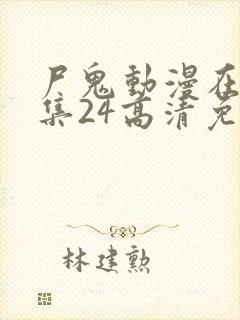 尸鬼動漫在
集24高清免
林建勲